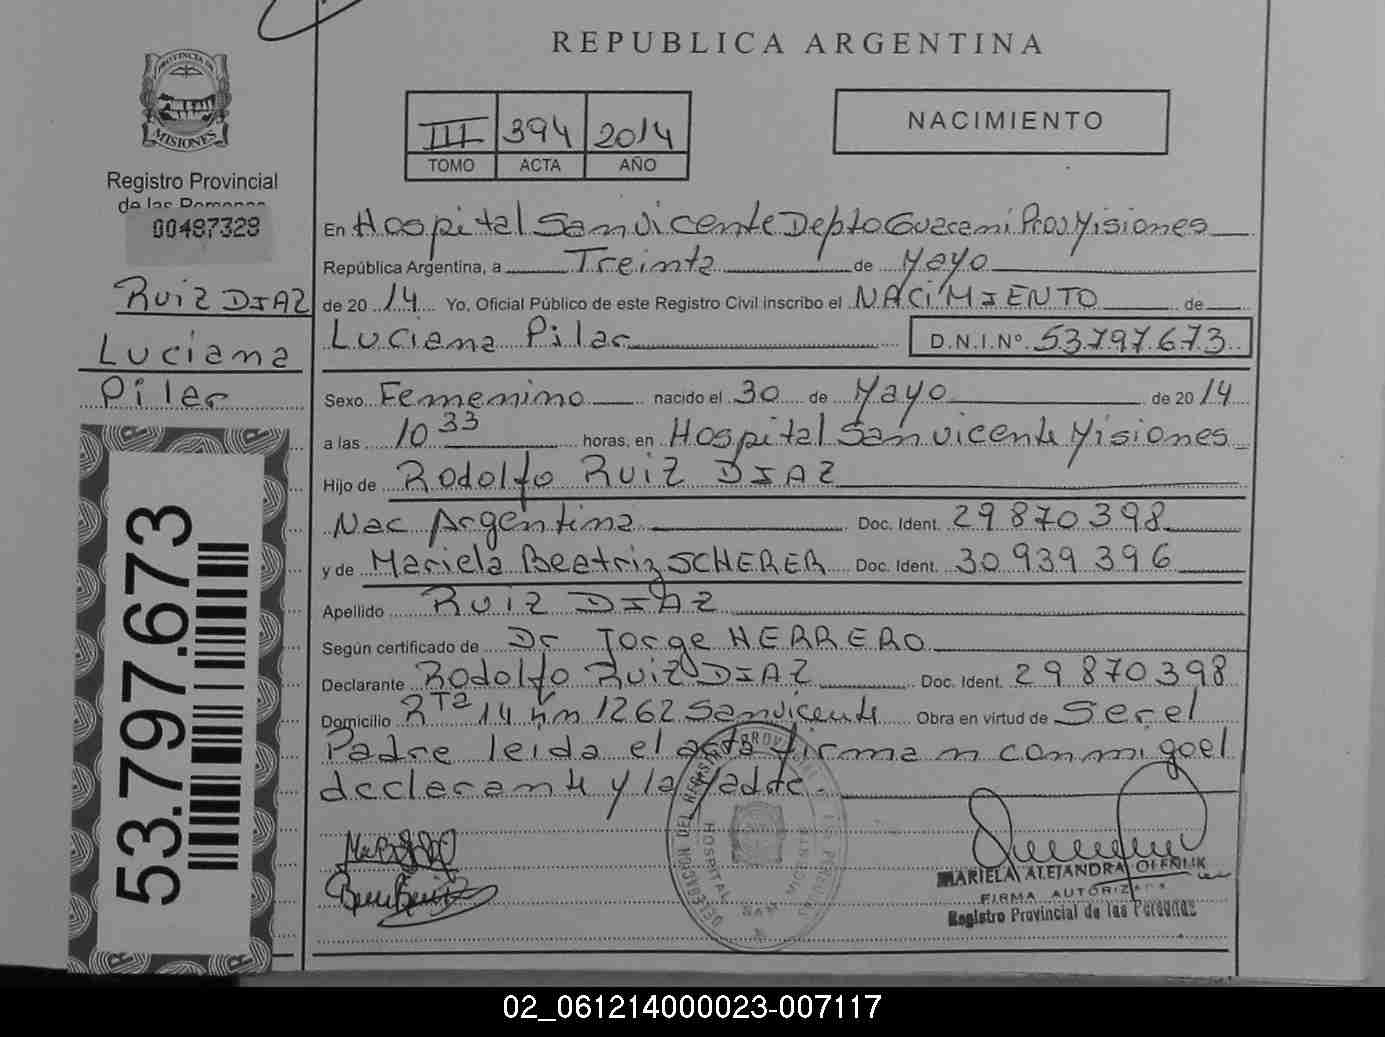 REPUBLICA ARGENTINA
PROVINCIA DE
MISIONES
Registro Provincial
de las Personas
00487328
Ruiz DIAZ
Luciana
Pilar
53.797.673
III 394 2014
TOMO ACTA AÑO
NACIMIENTO
En Hospital San Vicente Depto Guarani Prov Misiones
República Argentina, a Treinta de Mayo
de 2014 Yo, Oficial Público de este Registro Civil inscribo el NACIMIENTO de
Luciana Pilar D.N.I.Nº 53.797.673
Sexo Femenino nacido el 30 de Mayo de 2014
a las 10 33 horas, en Hospital San Vicente Misiones
Hijo de Rodolfo RUIZ DIAZ
Nac Argentina Doc. Ident. 29 870 398
y de Mariela Beatriz SCHERER Doc. Ident. 30 939 396
Apellido RUIZ DIAZ
Según certificado de Dr Jorge HERRERO
Declarante Rodolfo Ruiz DIAZ Doc. Ident. 29 870 398
Domicilio RTa 14 Km 1262 San Vicente Obra en virtud de Ser el
Padre leida el acta firman conmigo el
declarante y la Madre.
DELEGACION DEL REGISTRO PROVINCIAL DE LAS PERSONAS
HOSPITAL SAN VICENTE
MARIELA ALEJANDRA OLENIUK
FIRMA AUTORIZADA
Registro Provincial de las Personas
02_061214000023-007117